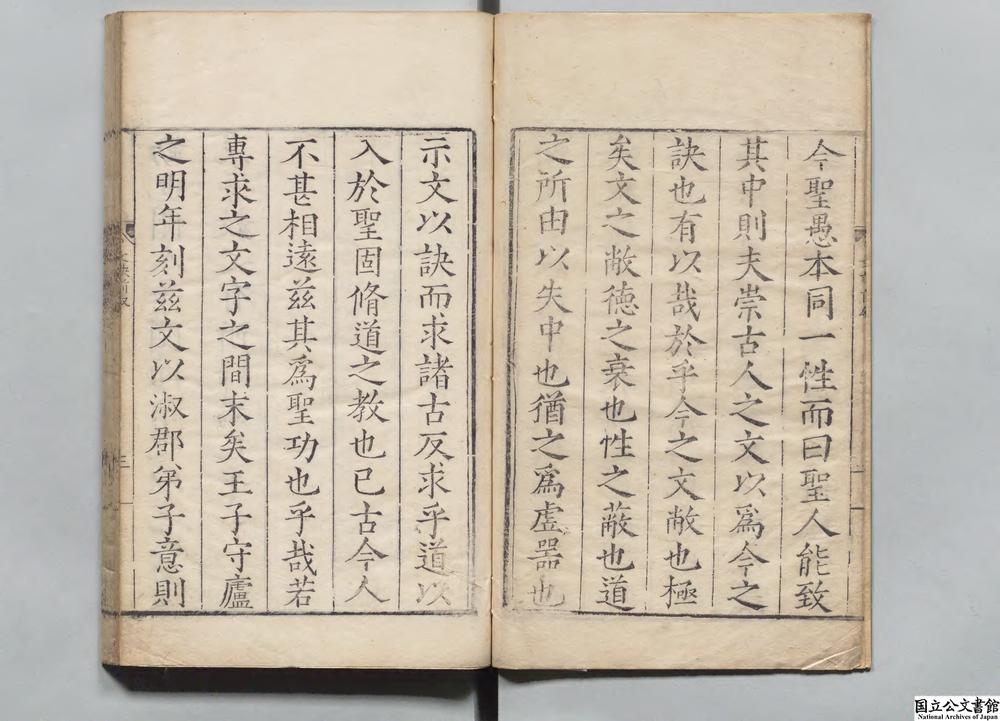 今聖愚本同一性而曰聖人能致
其中則夫崇古人之文以爲今之
訣也有以哉於乎今之文敝也極
矣文之敝德之衰也性之蔽也道
之所由以失中也猶之爲虛器也
示文以訣而求諸古反求乎道以
入於聖固脩道之教也已古今人
不甚相遠茲其爲聖功也乎哉若
專求之文字之間末矣王子守廬
之明年刻茲文以淑郡弟子意則
三
国立公文書館
National Archives of Japan